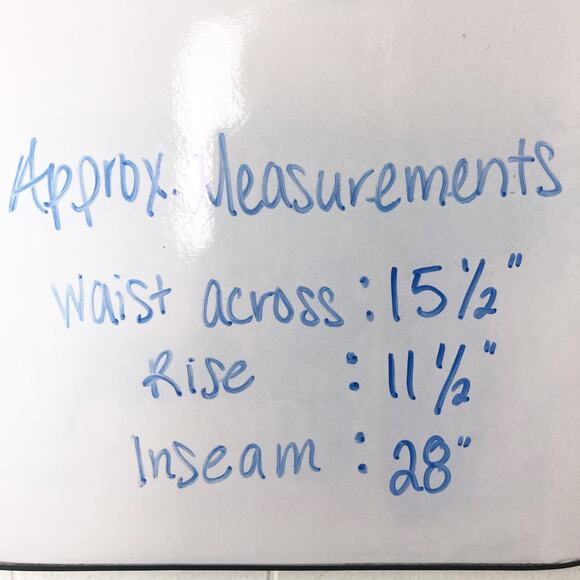 Approx. Measurements
Waist across : 15 1/2"
Rise : 11 1/2"
Inseam : 28"